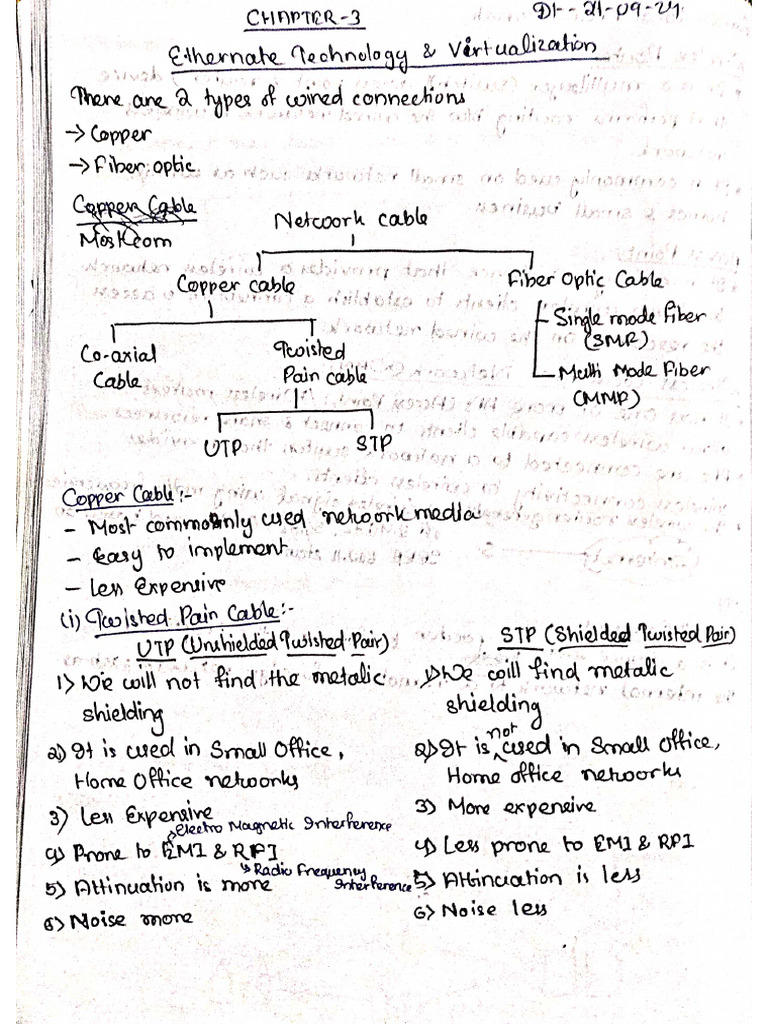 CHAPTER-3
Dt- 21-09-21
Ethernate Technology & Virtualization
There are 2 types of wired connections
→ Copper
→ Fiber optic
Copper Cable
Most com
Network cable
Copper cable
Fiber Optic Cable
Co-axial
Cable
Twisted
Pain cable
Single mode Fiber
(SMF)
Multi Mode Fiber
(MMF)
UTP
STP
Copper Cable:-
- Most commonly used network media
- Easy to implement
- Less Expensive
(i) Twisted Pain Cable:-
UTP (Unshielded Twisted Pair)
1) We will not find the metalic
shielding
2) It is used in Small Office,
Home Office networks
3) Less Expensive
Electro Magnetic Interference
4) Prone to EMI & RFI
Radio Frequency
Interference
5) Attinuation is more
6) Noise more
STP (Shielded Twisted Pair)
1) We will find metalic
shielding
not
2) It is used in Small Office,
Home office network
3) More expensive
4) Less prone to EMI & RFI
5) Attinuation is less
6) Noise less